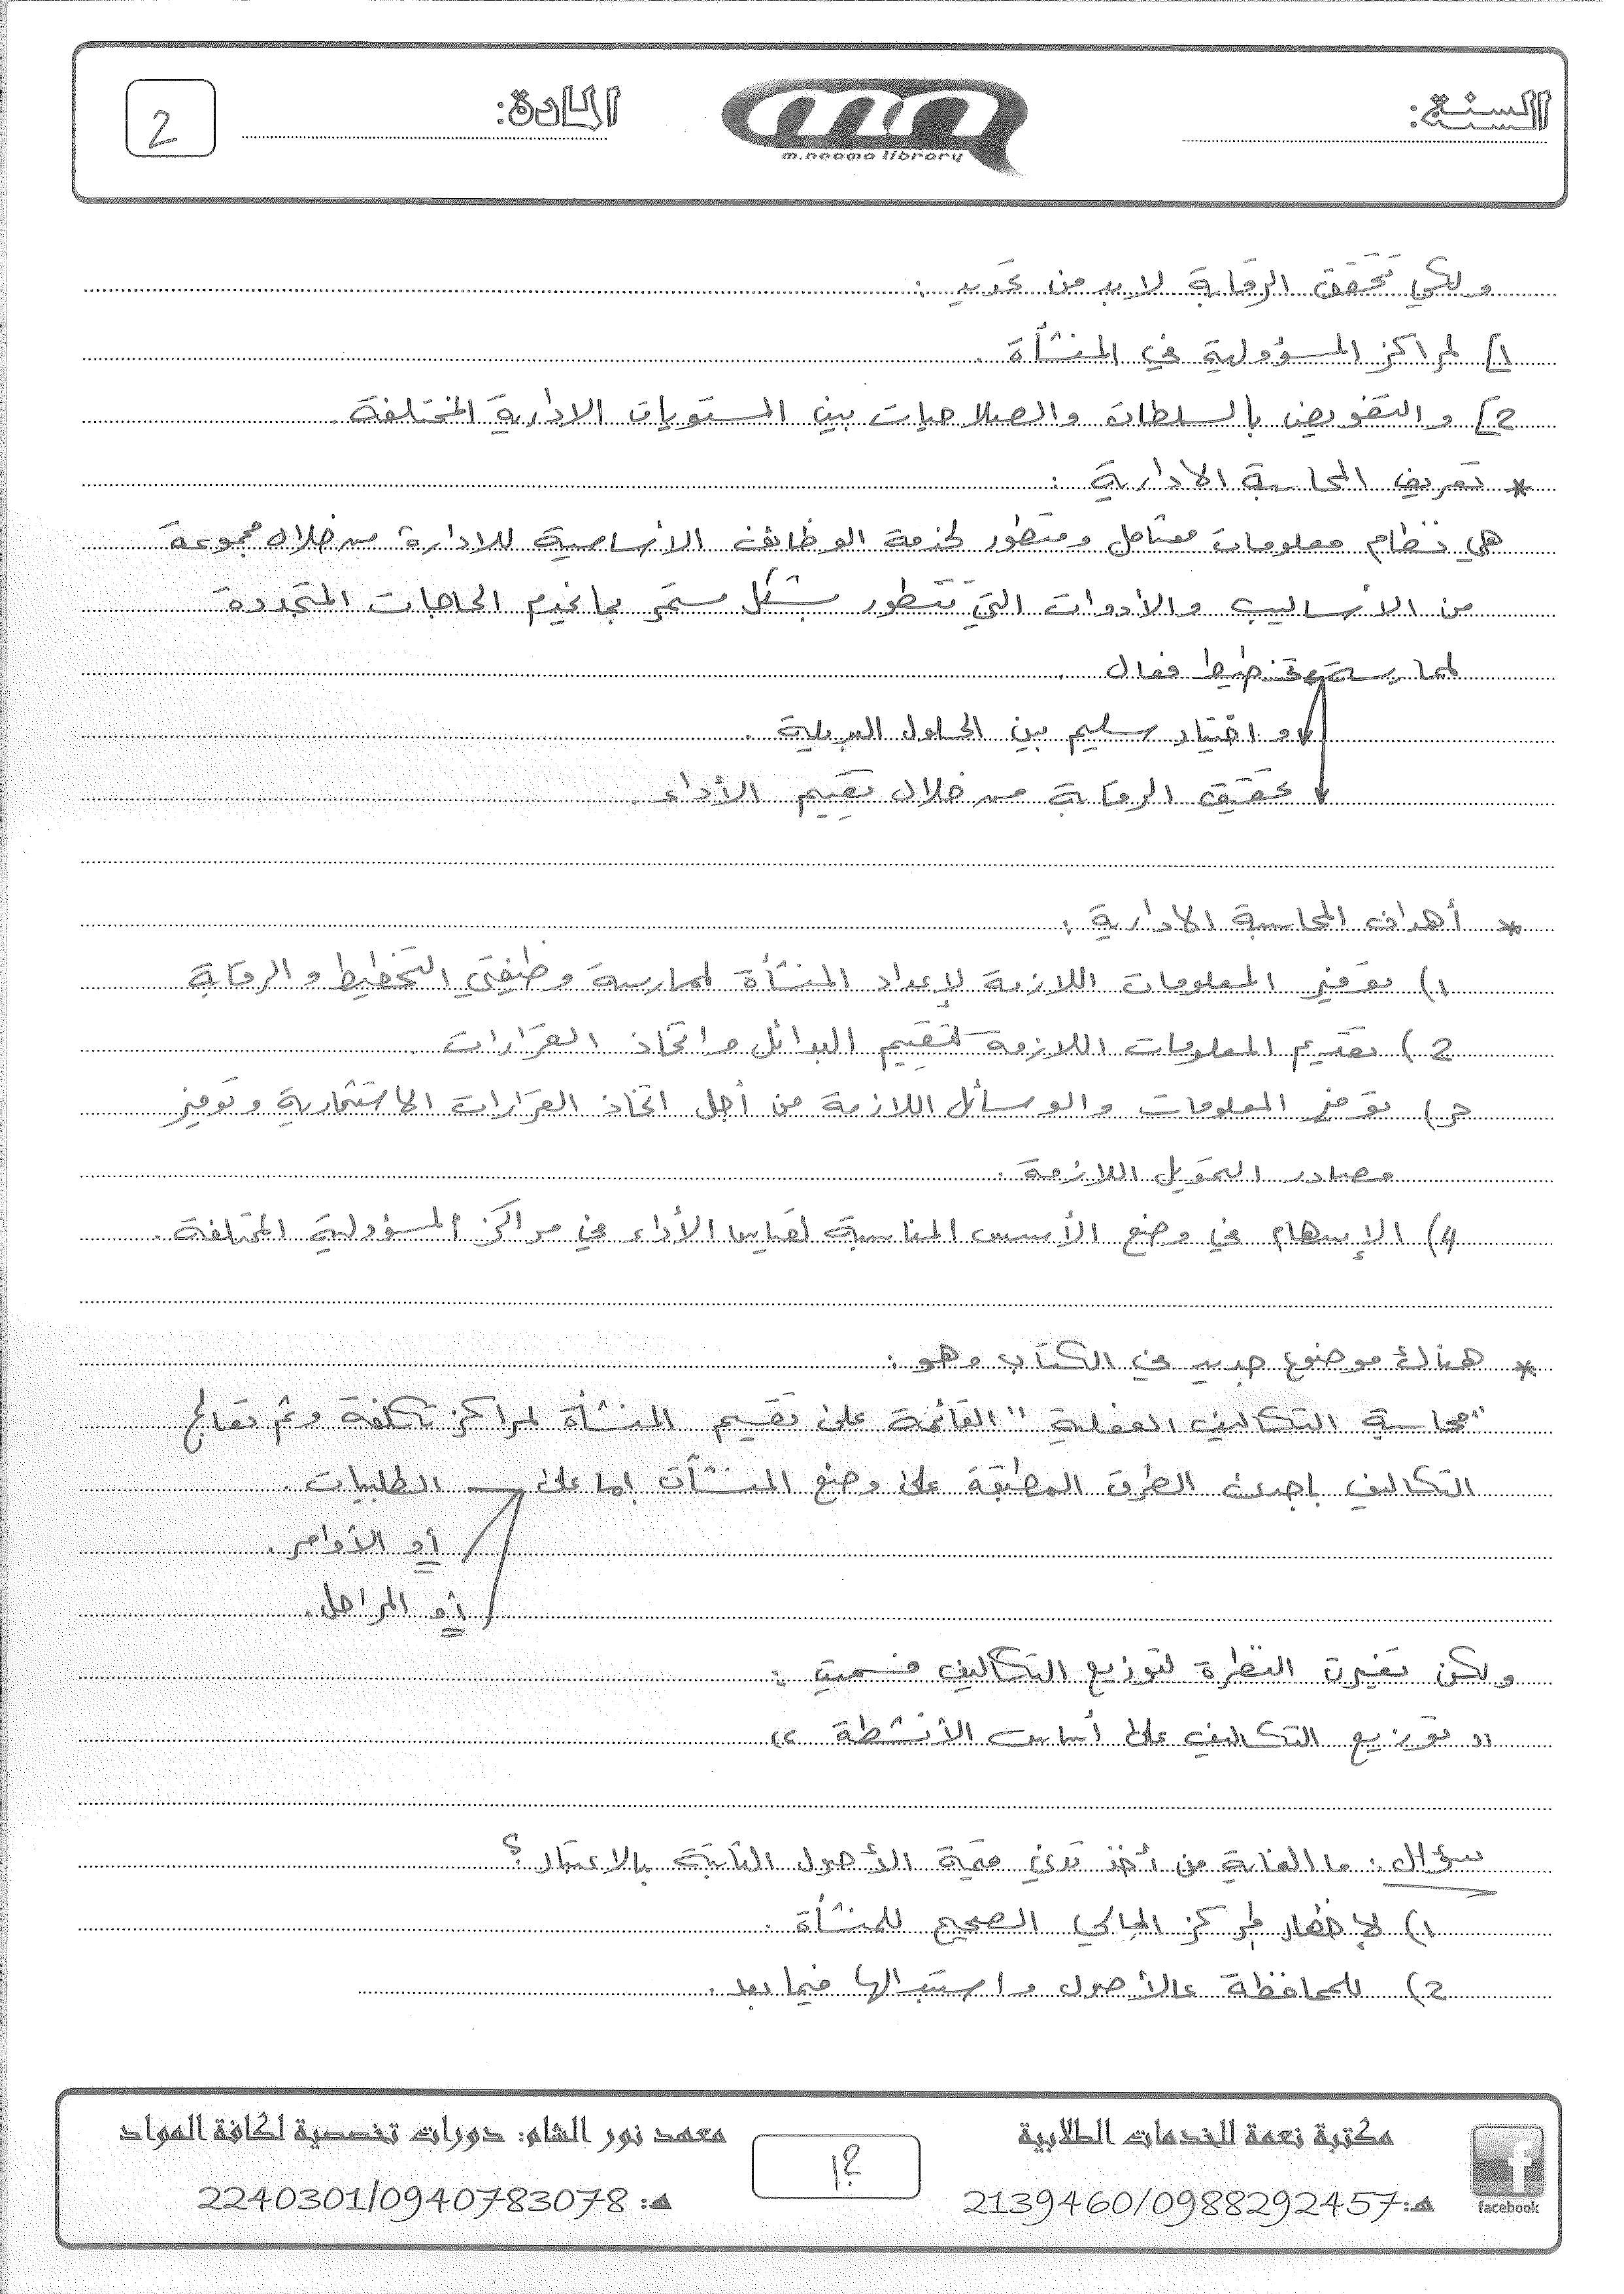 السنة:
m.naama library
المادة:
2
ولكي تتحقق الرقابة لا بد من تحديد :
1] لمراكز المسؤولية في المنشأة .
2] والتفويض بالسلطات والصلاحيات بين المستويات الادارية المختلفة .
* تعريف المحاسبة الادارية :
هي نظام معلومات متكامل ومتطور لخدمة الوظائف الأساسية للادارة من خلال مجموعة
من الأساليب والأدوات التي تتطور بشكل مستمر بما يخدم الحاجات المتجددة
لممارسة تخطيط فعال .
واختيار سليم بين الحلول البديلة .
تحقيق الرقابة من خلال تقييم الأداء .
* أهداف المحاسبة الادارية :
1) توفير المعلومات اللازمة لإعداد المنشأة لممارسة وظيفتي التخطيط والرقابة
2) تقديم المعلومات اللازمة لتقييم البدائل واتخاذ القرارات .
3) توفير المعلومات والوسائل اللازمة من أجل اتخاذ القرارات الاستثمارية وتوفير
مصادر التمويل اللازمة .
4) الإسهام في وضع الأسس المناسبة لقياس الأداء في مراكز المسؤولية المختلفة .
* هناك موضوع جديد في الكتاب وهو :
"محاسبة التكاليف الفعلية" القائمة على تقسيم المنشأة لمراكز تكلفة وثم تعالج
التكاليف باحدى الطرق المطبقة على وضع المنشآت إما على الطلبيات .
أو الأوامر .
أو المراحل .
ولكن تغيرت النظرة لتوزيع التكاليف فسميت :
" توزيع التكاليف على أساس الأنشطة "
سؤال : ما الغاية من أخذ تدني قيمة الأصول الثابتة بالاعتبار ؟
1) لإظهار المركز المالي الصحيح للمنشأة .
2) للمحافظة عالأصول واستبدالها فيما بعد .
مكتبة نعمة للخدمات الطلابية
معهد نور الشام: دورات تخصصية لكافة المواد
هـ: 2139460/0988292457
هـ: 2240301/0940783078
facebook